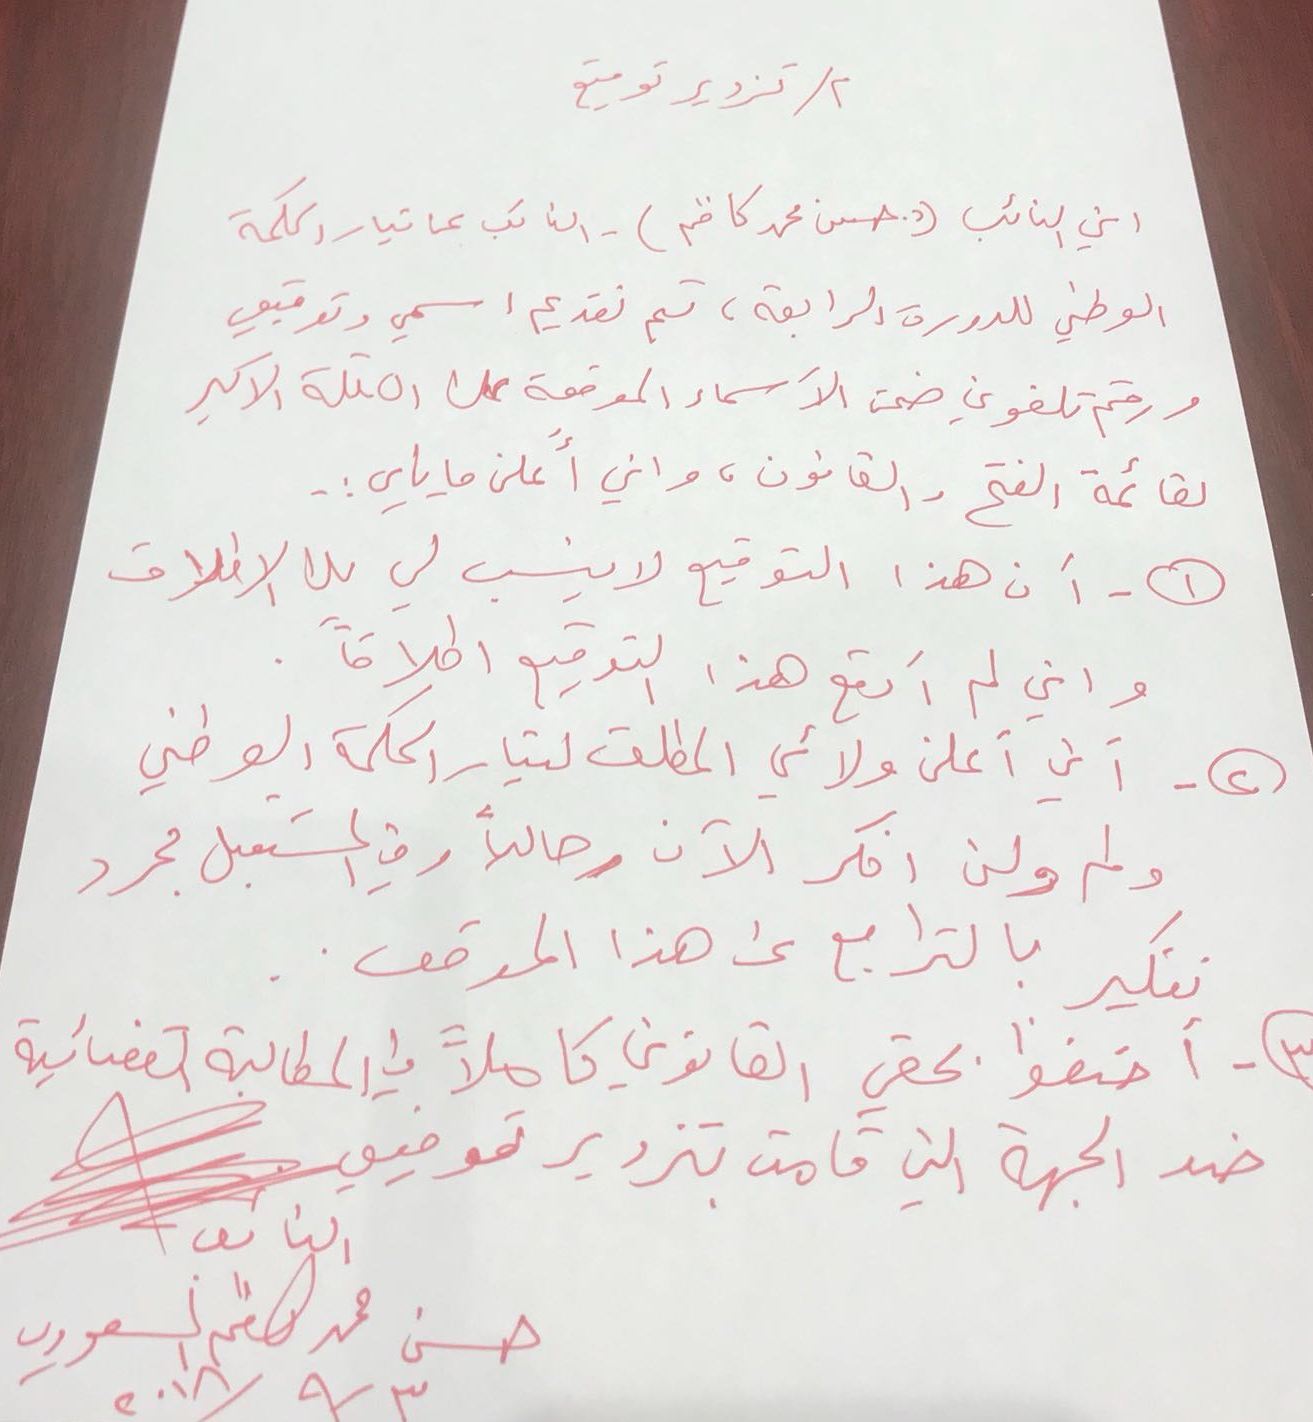 م/ تزوير توقيع
اني النائب (د. حسن محمد كاظم) - النائب عن تيار الحكمة
الوطني للدورة الرابعة، تم تقديم اسمي وتوقيعي
ورقم تلفوني ضمن الأسماء الموقعة على الكتلة الاكبر
لقائمة الفتح والقانون، واني أُعلن ماياي :-
١- أن هذا التوقيع لاينسب لي على الاطلاق
واني لم أوقع هذا التوقيع اطلاقاً .
٢- أني أعلن ولائي المطلق لتيار الحكمة الوطني
ولم ولن افكر الآن وحالياً وفي المستقبل مجرد
تفكير بالتراجع عن هذا الموقف .
٣- أحتفظ بحقي القانوني كاملاً في المطالبة القضائية
ضد الجهة التي قامت بتزوير توقيعي
النائب
حسن محمد كاظم المسعودي
٢٠١٨/٩/٣